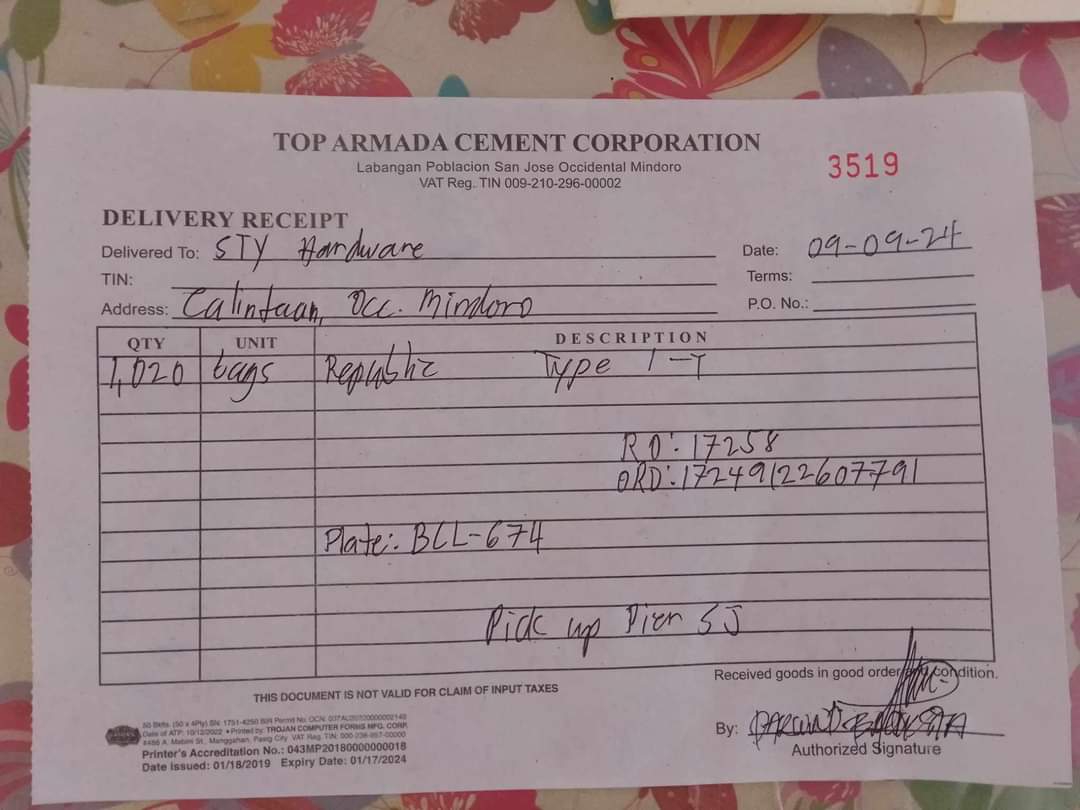 TOP ARMADA CEMENT CORPORATION
Labangan Poblacion San Jose Occidental Mindoro
VAT Reg. TIN 009-210-296-00002
3519
DELIVERY RECEIPT
Delivered To: STY Hardware
Date: 09-09-24
TIN:
Terms:
Address: Calintaan, Occ. Mindoro
P.O. No.:
QTY UNIT DESCRIPTION
1,020 bags Republic Type 1-T
RO: 17258
ORD: 17249122607791
Plate: BCL-674
Pick up Pier SJ
Received goods in good order and condition.
THIS DOCUMENT IS NOT VALID FOR CLAIM OF INPUT TAXES
50 Bkts. (50 x 4Ply) SN: 1751-4250 BIR Permit No. OCN:
Date of ATP: 10/12/2022 • Printed by: TROJAN COMPUTER FORMS MFG. CORP.
#486 A. Mabini St., Manggahan, Pasig City VAT Reg. TIN:
Printer's Accreditation No.: 043MP20180000000018
Date Issued: 01/18/2019 Expiry Date: 01/17/2024
By:
Authorized Signature